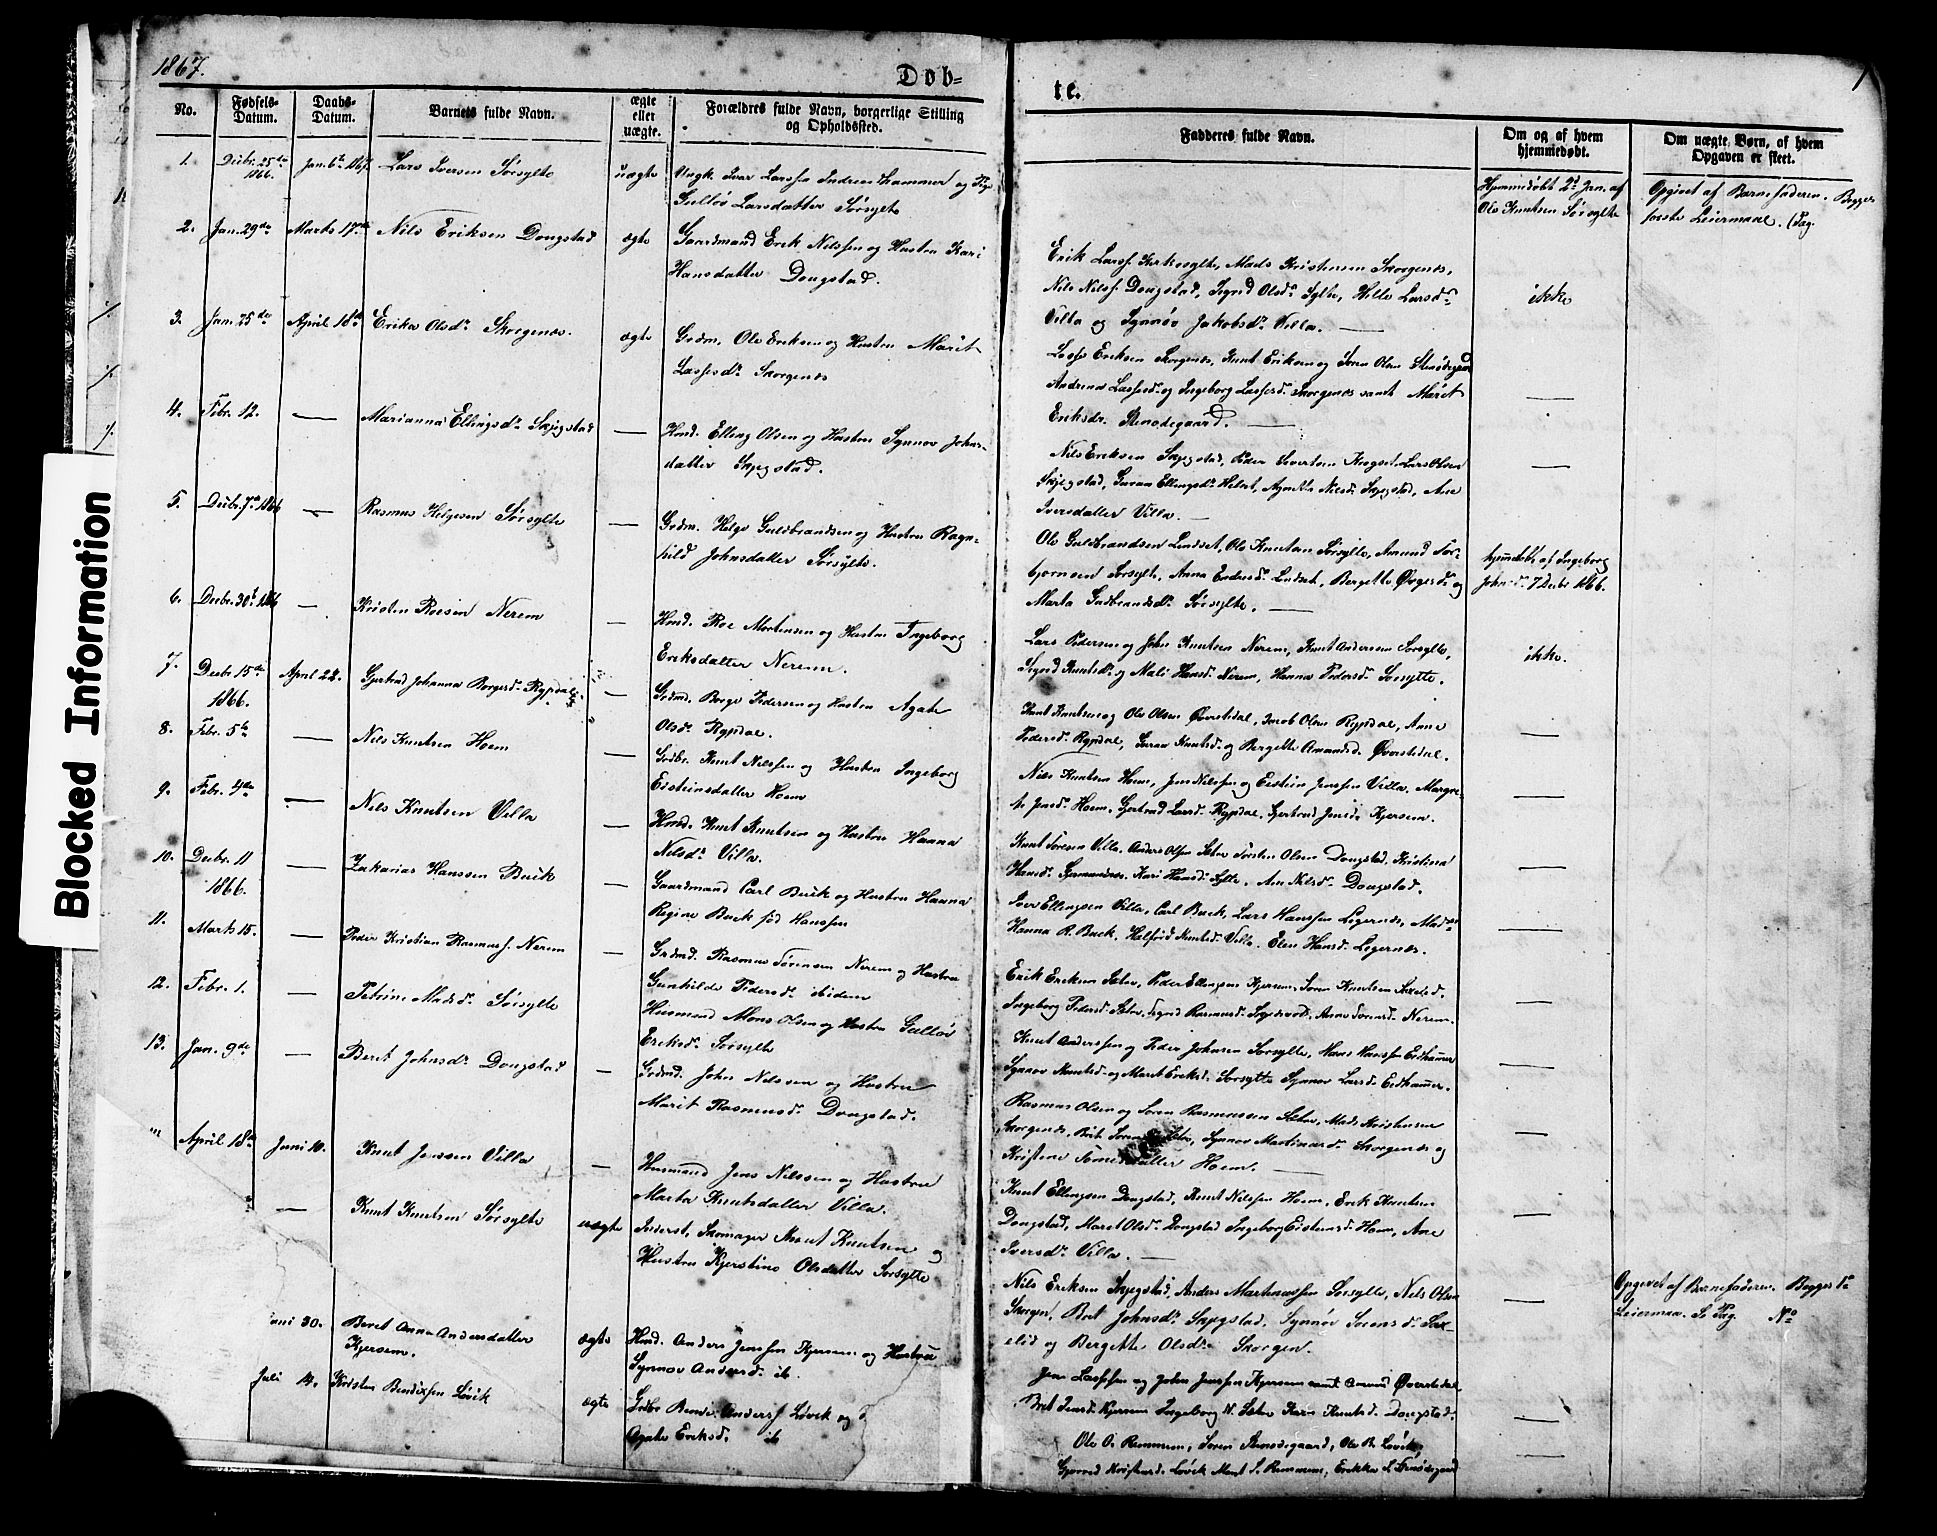 1867.
Døb=
te.
1
No.
Fødsels-
Datum.
Daabs-
Datum.
Barnets fulde Navn.
ægte
eller
uægte.
Forældres fulde Navn, borgerlige Stilling
og Opholdssted.
Fadderes fulde Navn.
Om og af hvem
hjemmedøbt.
Om uægte Børn, af hvem
Opgaven er skeet.
Blocked Information
1. Decbr. 25de Jan. 6te 1867 Lars Iversen Sørsylte uægte Ungk. Ivar Larssen Indreeidhammer og Pige
1866.
Gulløv Larsdatter Sørsylte
Hjemmedøbt 2d Jan. af
Ole Knutsen Sørsylte
Opgivet af Barnefaderen. Begges
første Leiermaal.
2. Jan. 29de Marts 17de Nils Eriksen Dougstad ægte Gaardmand Erik Nilssen og Hustru Kari
Hansdatter Dougstad.
Erik Larss. Kirkesylte, Mads Kristensen Skorgenes,
Nils Nilss. Dougstad, Sigrid Olsdr Sylte, Larsdr
Villa og Synnøv Jakobsdr Villa.
ikke
3. Jan. 25de April 18de Erika Olsdr Skorgenes. ægte Grdm. Ole Eriksen og Hustru Marit
Lassesdr Skorgenes
Lasse Eriksen Skorgenes, Knut Eriksen og Søren Olsen
Andrea Lassesdr og Ingeborg Lassesdr Skorgenes samt Marit
Eriksdr.
4. Febr. 12. — Marianna Ellingsdr Skjegstad — Hmd. Elling Olsen og Hustru Synnøv Johns-
datter Skjegstad.
Nils Eriksen Skjegstad, Peder Sivertsen Lars Olsen
Skjegstad, Guran Ellingsdr Agnethe Nilsdr Skjegstad, Ane
Iversdatter Villa.
5. Decbr. 7de 1866 — Rasmus Helgesen Sørsylte — Grdm. Helge Guldbrandsen og Hustru Ragn-
hild Johnsdatter Sørsylte.
Ole Guldbrandsen Lindset, Ole Knutsen Sørsylte, Amund Tor-
bjørnsen Sørsylte, Anna Endresdr Lindset, Bergitte og
Marta Gudbrandsdr Sørsylte.
hjemmedøbt af Ingeborg
Johnsd. 7 Decbr 1866.
6. Decbr. 30te 1866 — Kristen Roesen Nerem — Hmd. Roe Mortensen og Hustru Ingeborg
Eriksdatter Nerem.
Lars Pedersen og John Knutsen Nerem, Knut Andersen Sørsylte,
Sigrid Knutsdr og Mali Hansd. Nerem, Hanna Pedersd. Sørsylte.
ikke.
7. Decbr. 15de April 22. Gjertrud Johanna Borgesdr Rypdal. — Grdmd. Borge Pedersen og Hustru Agate
1866.
Olsdr Rypdal.
Knut Knutsen og Ole Olsen Øvrestedal, Jacob Olsen Rypdal, Anne
Pedersd. Rypdal, Guran Knutsd. og Bergitte Amundsd. Øverstedal.
8. Febr. 5te — Nils Knutsen Hoem — Grdbr. Knut Nilssen og Hustru Ingeborg
Eisteinsdatter Hoem
Nils Knutsen Hoem, Jens Nilssen og Eistein Jenssen Villa, Margre-
te Jensd. Hoem, Gjertrud Larsd. Rypdal, Gjertrud Jensd. Kjersem.
9. Febr. 4de — Nils Knutsen Villa — Hmd. Knut Knutsen og Hustru Hanna
Nilsdr Villa.
Knut Sørensen Villa, Anders Olsen Sæter Torsten Olsen Dougstad, Kristina
Hansd. Kari Hansd. Sylte. Ane Nilsd. Dougstad.
10. Decbr. 11 — Zakarias Hanssen Buck — Gaardmand Carl Buck og Hustru Hanna
1866.
Regine Buck fød Hanssen
Iver Ellingsen Villa, Carl Buck, Lars Hanssen Legernes, Mad:
Hanna R. Buck, Knutsd. Villa. Elen Hansd. Legernes.
11. Marts 15. — Peder Kristian Rasmuss. Nerem — Grdmd. Rasmus Sørensen Nerem og Hustru
Gunhilde Pedersd. ibidem
Erik Eriksen Sæter, Peder Ellingsen Kjersem, Søren Knutsen
Ingeborg Pedersd. Sæter, Sigrid Rasmusd. Anne Nerem.
12. Febr. 1. — Petrine Madsdr Sørsylte — Husmand Mons Olsen og Hustru Gulløv
Eriksdr Sørsylte
Knut Anderssen og Peder Johnsen Sørsylte, Hans Hanssen Eidhammer
Synnøv Knutsd. og Marit Eriksd. Sørsylte Synnøv Larsd. Eidhammer.
13. Jan. 9de — Beret Johnsdr Dougstad — Grdmd. John Nilssen og Hustru
Marit Rasmusd. Dougstad.
Rasmus Olsen og Søren Rasmussen Sæter, Mads Kristensen
Skorgenes, Brit Sæter, Synnøv Martinusd. Skorgenes og
Kristine Hoem.
April 18de Juni 10. Knut Jenssen Villa — Husmand Jens Nilssen og Hustru
Marta Knutsdatter Villa.
Knut Ellingsen Dougstad, Knut Nilssen Hoem, Erik Knutsen
Dougstad, Maret Olsdr Dougstad Ingeborg Eisteinsd. Hoem, Ane
Iversdr Villa.
— Knut Knutsen Sørsylte uægte Inderst, Skomager Knut Knutsen og
Hustru Kjerstine Olsdatter Sørsylte
Nils Eriksen Skjegstad, Anders Martinussen Sørsylte, Nils Olsen
Skorgen, Bret Johnsdr Skjegstad, Synnøv Sørensd. Sax-
elid og Bergitte Olsdr Skorgen.
Opgivet af Barnefaderen. Begges
Leiermaal.
uni 30. Beret Anna Andersdatter ægte Hmd. Anders Jenssen Kjersem og Hustru
Kjersem.
Synnøv Andersd. ib.
Jens Lassesen og John Jenssen Kjersem samt Amund Øverstedal,
Bret Jensd. Kjersem Ingeborg N. Sæter Karn Knutsd. Dougstad.
Juli 14. Kristen Bendixsen Løvik ægte Grdbr Anderss. Løvik og
Agate Eriksd. ib
Ole O. Remmem, Søren Ole B. Løvik,
Kristensd. Løvik Marit S. Remmem, Erikka S.